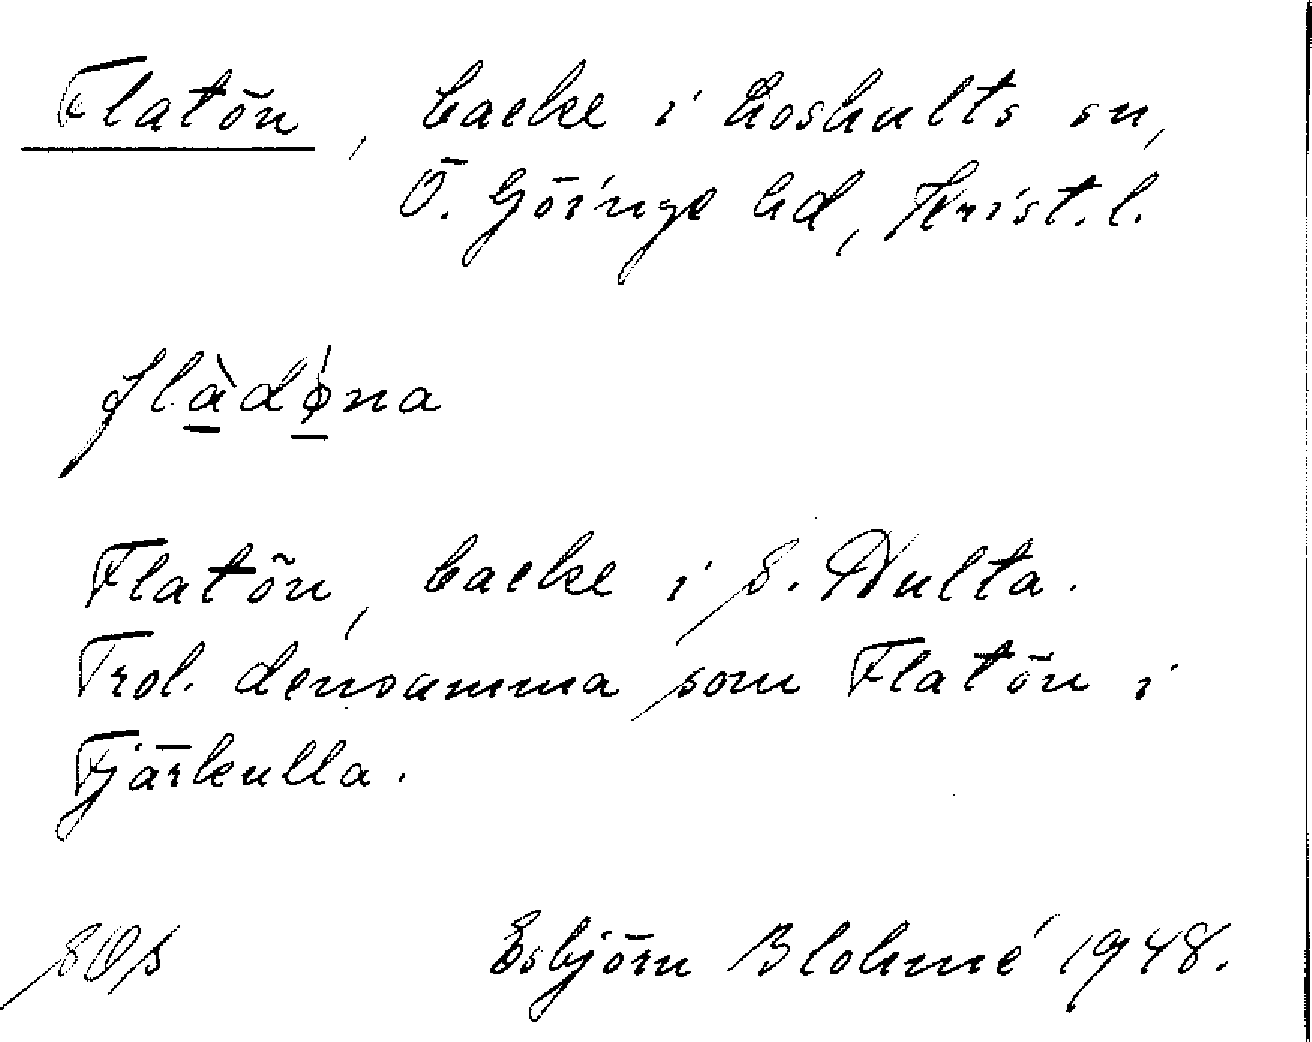 Flatön, backe i Loshults sn,
Ö. Göinge hd, Krist. l.
flàdǿna
Flatön, backe i S. Hulta.
Trol. densamma som Flatön i
Fjärkulla.
Esbjörn Blohmé 1948.